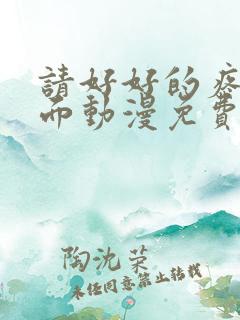 請好好的疼
而動漫免費
陶沈荣
未经同意禁止转载